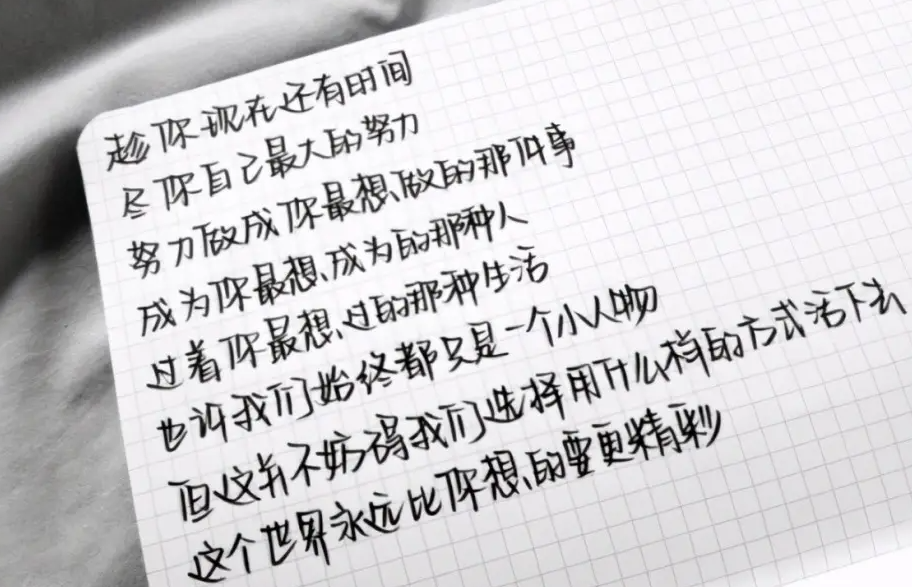 趁你现在还有时间
尽你自己最大的努力
努力做成你最想做的那件事
成为你最想成为的那种人
过着你最想过的那种生活
也许我们始终都只是一个小人物
但这并不妨碍我们选择用什么样的方式活下去
这个世界永远比你想的要更精彩